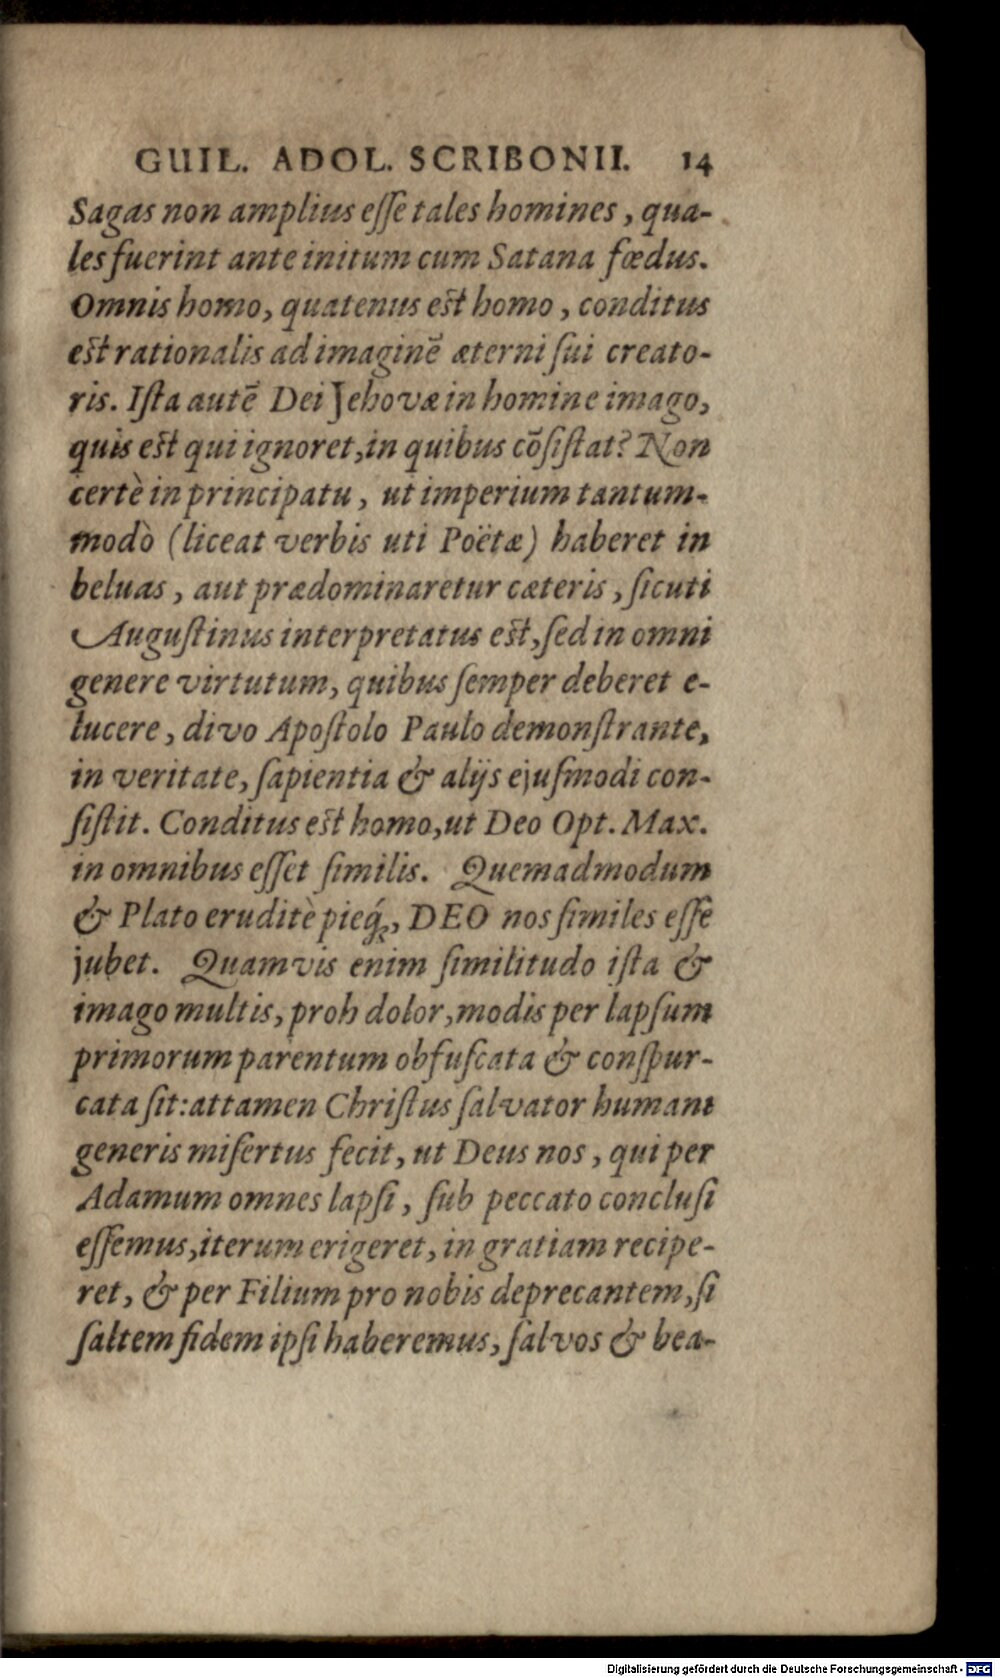 GUIL. ADOL. SCRIBONII. 14
Sagas non amplius eſſe tales homines, qua-
les fuerint ante initum cum Satana fœdus.
Omnis homo, quatenus eſt homo, conditus
eſt rationalis ad imaginē æterni ſui creato-
ris. Iſta autē Dei Jehovæ in homine imago,
quis eſt qui ignoret, in quibus cōſiſtat? Non
certè in principatu, ut imperium tantum-
modò (liceat verbis uti Poëtæ) haberet in
beluas, aut prædominaretur cæteris, ſicuti
Auguſtinus interpretatus eſt, ſed in omni
genere virtutum, quibus ſemper deberet e-
lucere, divo Apoſtolo Paulo demonſtrante,
in veritate, ſapientia & alijs ejuſmodi con-
ſiſtit. Conditus eſt homo, ut Deo Opt. Max.
in omnibus eſſet ſimilis. Quemadmodum
& Plato eruditè pieq́;, DEO nos ſimiles eſſe
jubet. Quamvis enim ſimilitudo iſta &
imago multis, proh dolor, modis per lapſum
primorum parentum obfuſcata & conſpur-
cata ſit: attamen Chriſtus ſalvator humani
generis miſertus fecit, ut Deus nos, qui per
Adamum omnes lapſi, ſub peccato concluſi
eſſemus, iterum erigeret, in gratiam recipe-
ret, & per Filium pro nobis deprecantem, ſi
ſaltem fidem ipſi haberemus, ſalvos & bea-
Digitalisierung gefördert durch die Deutsche Forschungsgemeinschaft - DFG